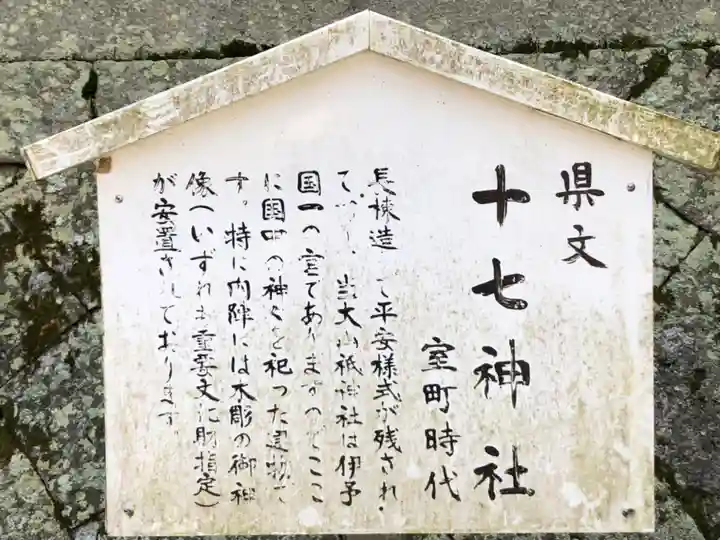 県文
十七神社
室町時代
長棟造 て平安様式が残され・
て 当大山祗神社は伊予
国一の宮でありますのでここ
に国中の神々を祀った建物で
す。特に内陣には木彫の御神
像(いずれも重要文化財指定)
が安置されております。